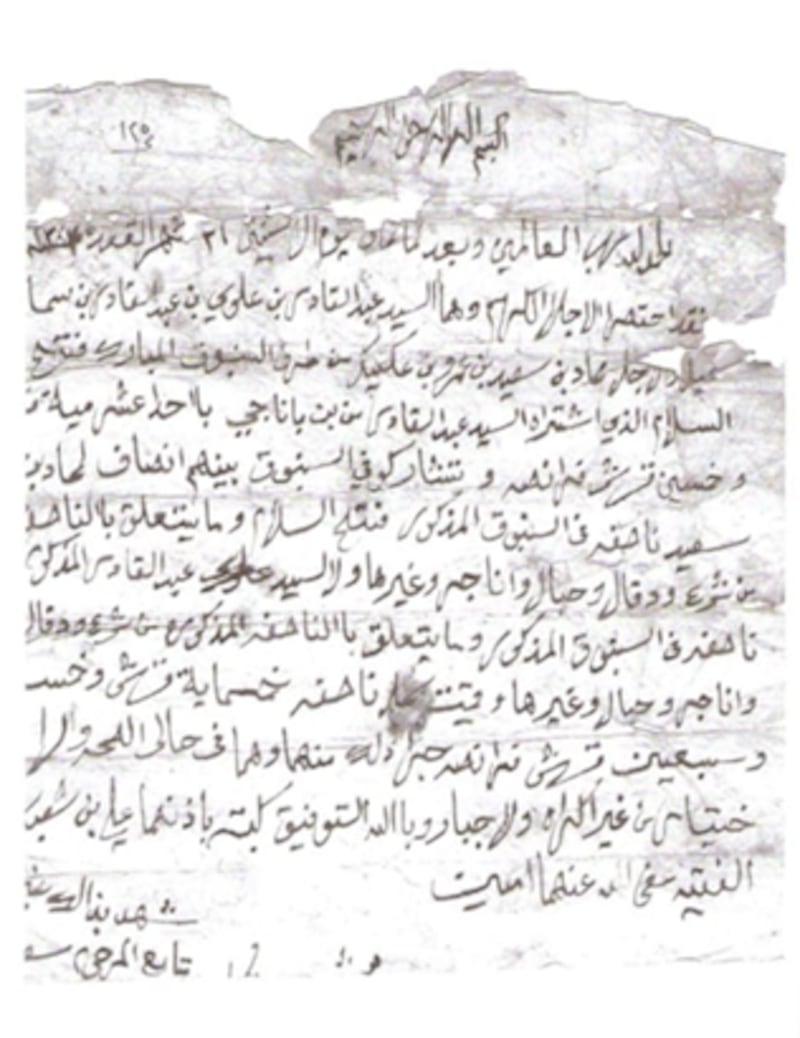 بسم الله الرحمن الرحيم
١٢٥
الحمد لله رب العالمين وبعد لما كان يوم الاثنين ٢١ شهر القعده
فقد احتضرا الاجلا الكرام وهما السيد عبدالقادر بن علوي بن عبدالقادر بن سما
الاجل بن سعيد بن عمرو بن من طرف السنبوق المبارك فتح
السلام الذي اشتراه السيد عبدالقادر من بن باناجي بااحدا عشر مية
وخمسين قرش فرانصه و يتشاركو في السنبوق بينهم انصاف
سعيد ناصفه في السنبوق المذكور فتح السلام وما يتعلق باالناصفه
من شرع ودقال وحبال واناجر وغيرها ولالسيد عبدالقادر المذكور
ناصفه في السنبوق المذكور وما يتعلق باالناصفه المذكوره من شرع ودقال
واناجر وحبال وغيرها وقيت كل ناصفه خمسماية قرش وخمسه
وسبعين قرش فرانصه جرا ذلك منهما وهما في حال الصحه والا
ختيار من غير اكراه ولا جبار وباالله التوفيق كتبه باذنهما علي بن
الفقيه عفى الله عنهما امين
شهد بذالك
تابع المرحوم